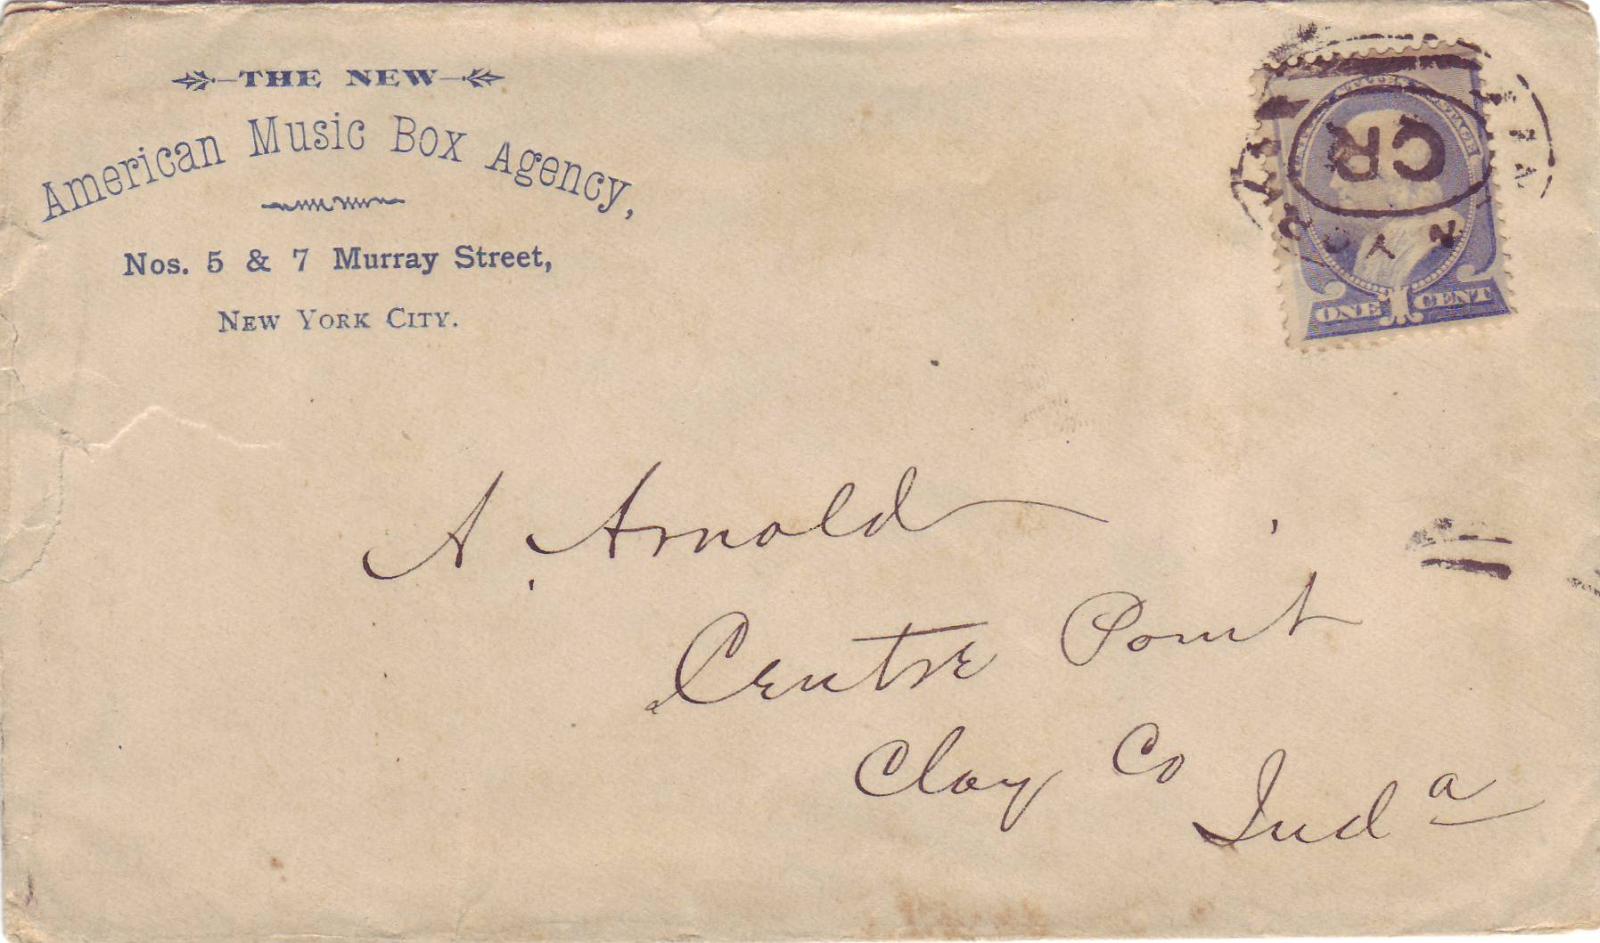 THE NEW
American Music Box Agency,
Nos. 5 & 7 Murray Street,
NEW YORK CITY.
CR
N Y
ONE 1 CENT
A. Arnold
Centre Point
Clay Co
Ind a